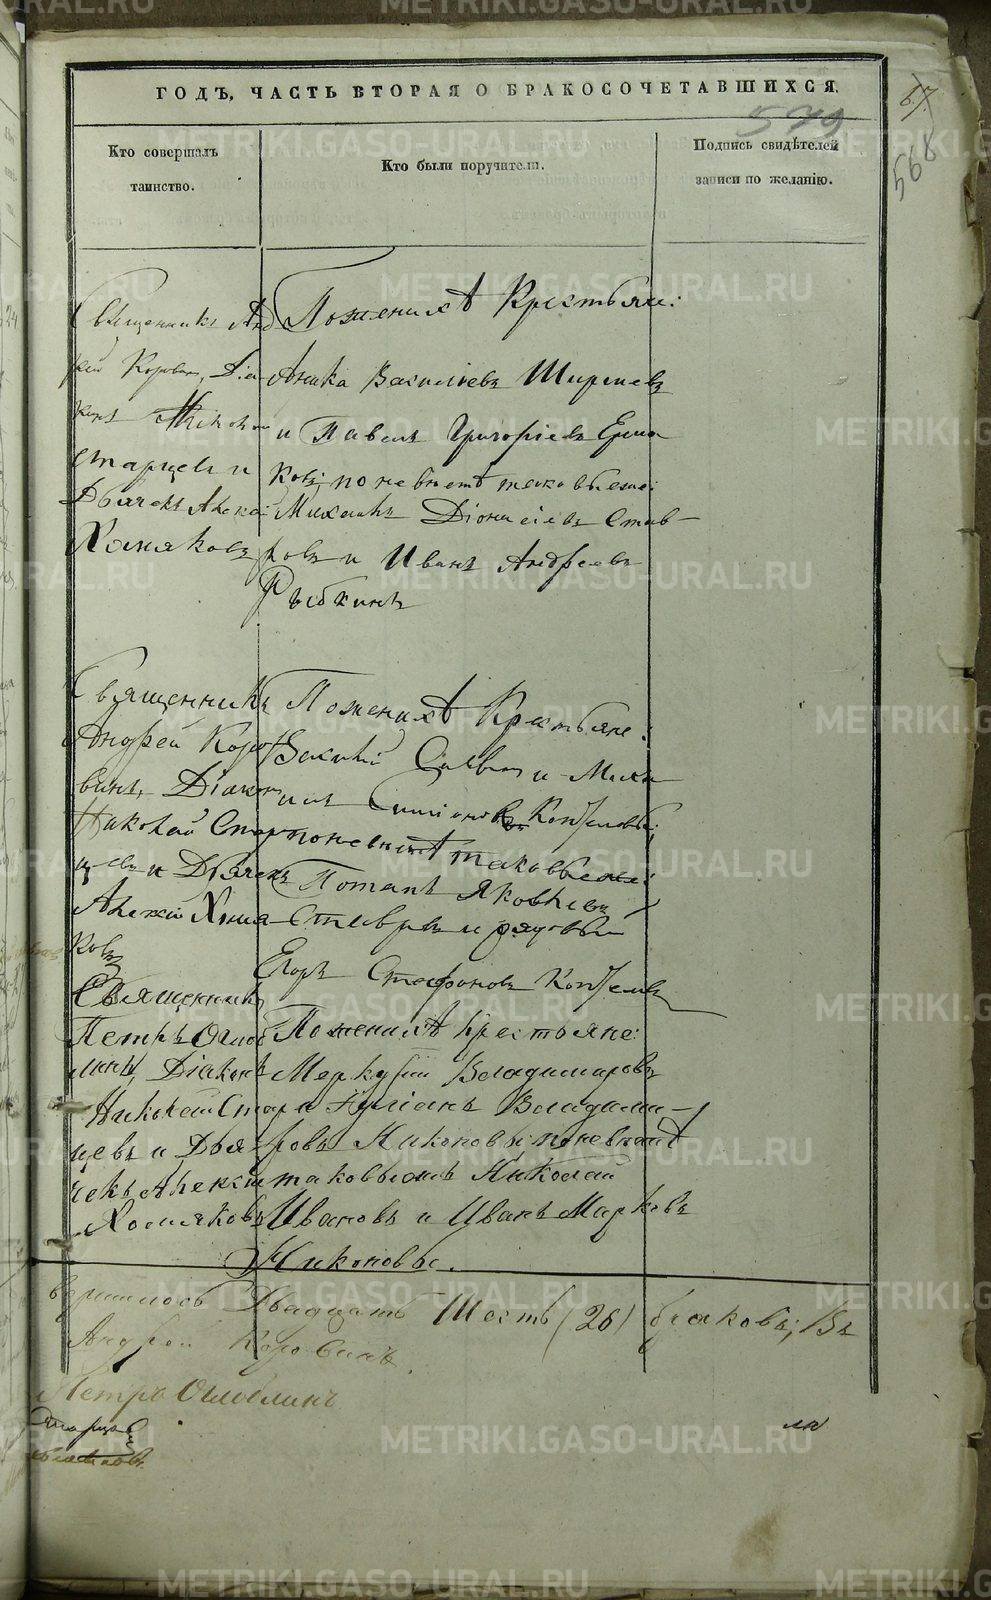 ГОДЪ, ЧАСТЬ ВТОРАЯ О БРАКОСОЧЕТАВШИХСЯ.
579
67
568
Кто совершалъ
таинство.
Кто были поручители.
Подпись свидѣтелей
записи по желанію.
Священникъ Анд
рей Коровин, Діа-
конъ
Старцевъ и
Дьячекъ Алексѣй
Хомяковъ
По женихѣ Крестьяне:
Аника Васильевъ Ширяевъ
и Павелъ Григорьевъ Ерма
ковъ; по невѣстѣ таковыеже:
Михаилъ Діонисіевъ Став-
ровъ и Иванъ Андреевъ
Рыбкинъ
Священникъ
Андрей Коро
винъ, Діаконъ
Николай Стар
цевъ и Дьячекъ
Алексѣй Хомя
ковъ
По женихѣ Крестьяне:
и Миха
илъ
по невѣстѣ таковыеже:
Потапъ Яковлевъ
Ставровъ и рядовый
Егоръ Стефановъ
Священникъ
Петръ Оглоб
линъ, Діаконъ
Николай Стар
цевъ и Дья
чекъ Алексѣй
Хомяковъ
По женихѣ крестьяне:
Меркурій Владимировъ
и Іуліанъ Владими-
ровъ Никоновы; по невѣстѣ
таковыежъ Николай
Ивановъ и Иванъ Марковъ
Никоновы.
вершилось Двадцать Шесть (26) браковъ; Въ
Андрей Коровинъ.
Петръ Оглоблинъ
Старцевъ
Хомяковъ.
METRIKI.GASO-URAL.RU